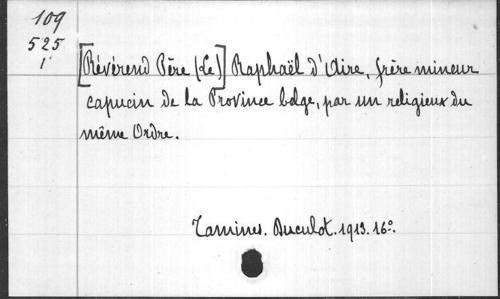 109
525
1
[Révérend Père (Le)] Raphaël d'Aire, frère mineur
capucin de la Province belge, par un religieux du
même Ordre.
Tamines. Duculot. 1913. 16º.